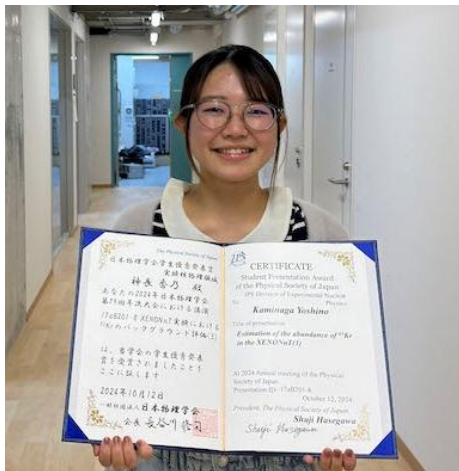 The Physical Society of Japan
日本物理学会学生優秀発表賞
実験核物理領域
神長 香乃 殿
あなたの2024年日本物理学会
第79回年次大会における講演
17aB201-8 XENONnT実験における
のバックグラウンド評価(1)
は、当学会の学生優秀発表
賞を受賞されましたことを
ここに証します
2024年10月12日
一般社団法人 日本物理学会
会長 長谷川 修司
JPS
CERTIFICATE
Student Presentation Award
of the Physical Society of Japan
JPS Division of Experimental Nuclear
Physics
To: Kaminaga Yoshino
Title of presentation:
Estimation of the abundance of ⁸⁵Kr
in the XENONnT(1)
At 2024 Annual meeting of the Physical
Society of Japan
Presentation ID: 17aB201-8
October 12, 2024
President, The Physical Society of Japan
Shuji Hasegawa
Shuji Hasegawa